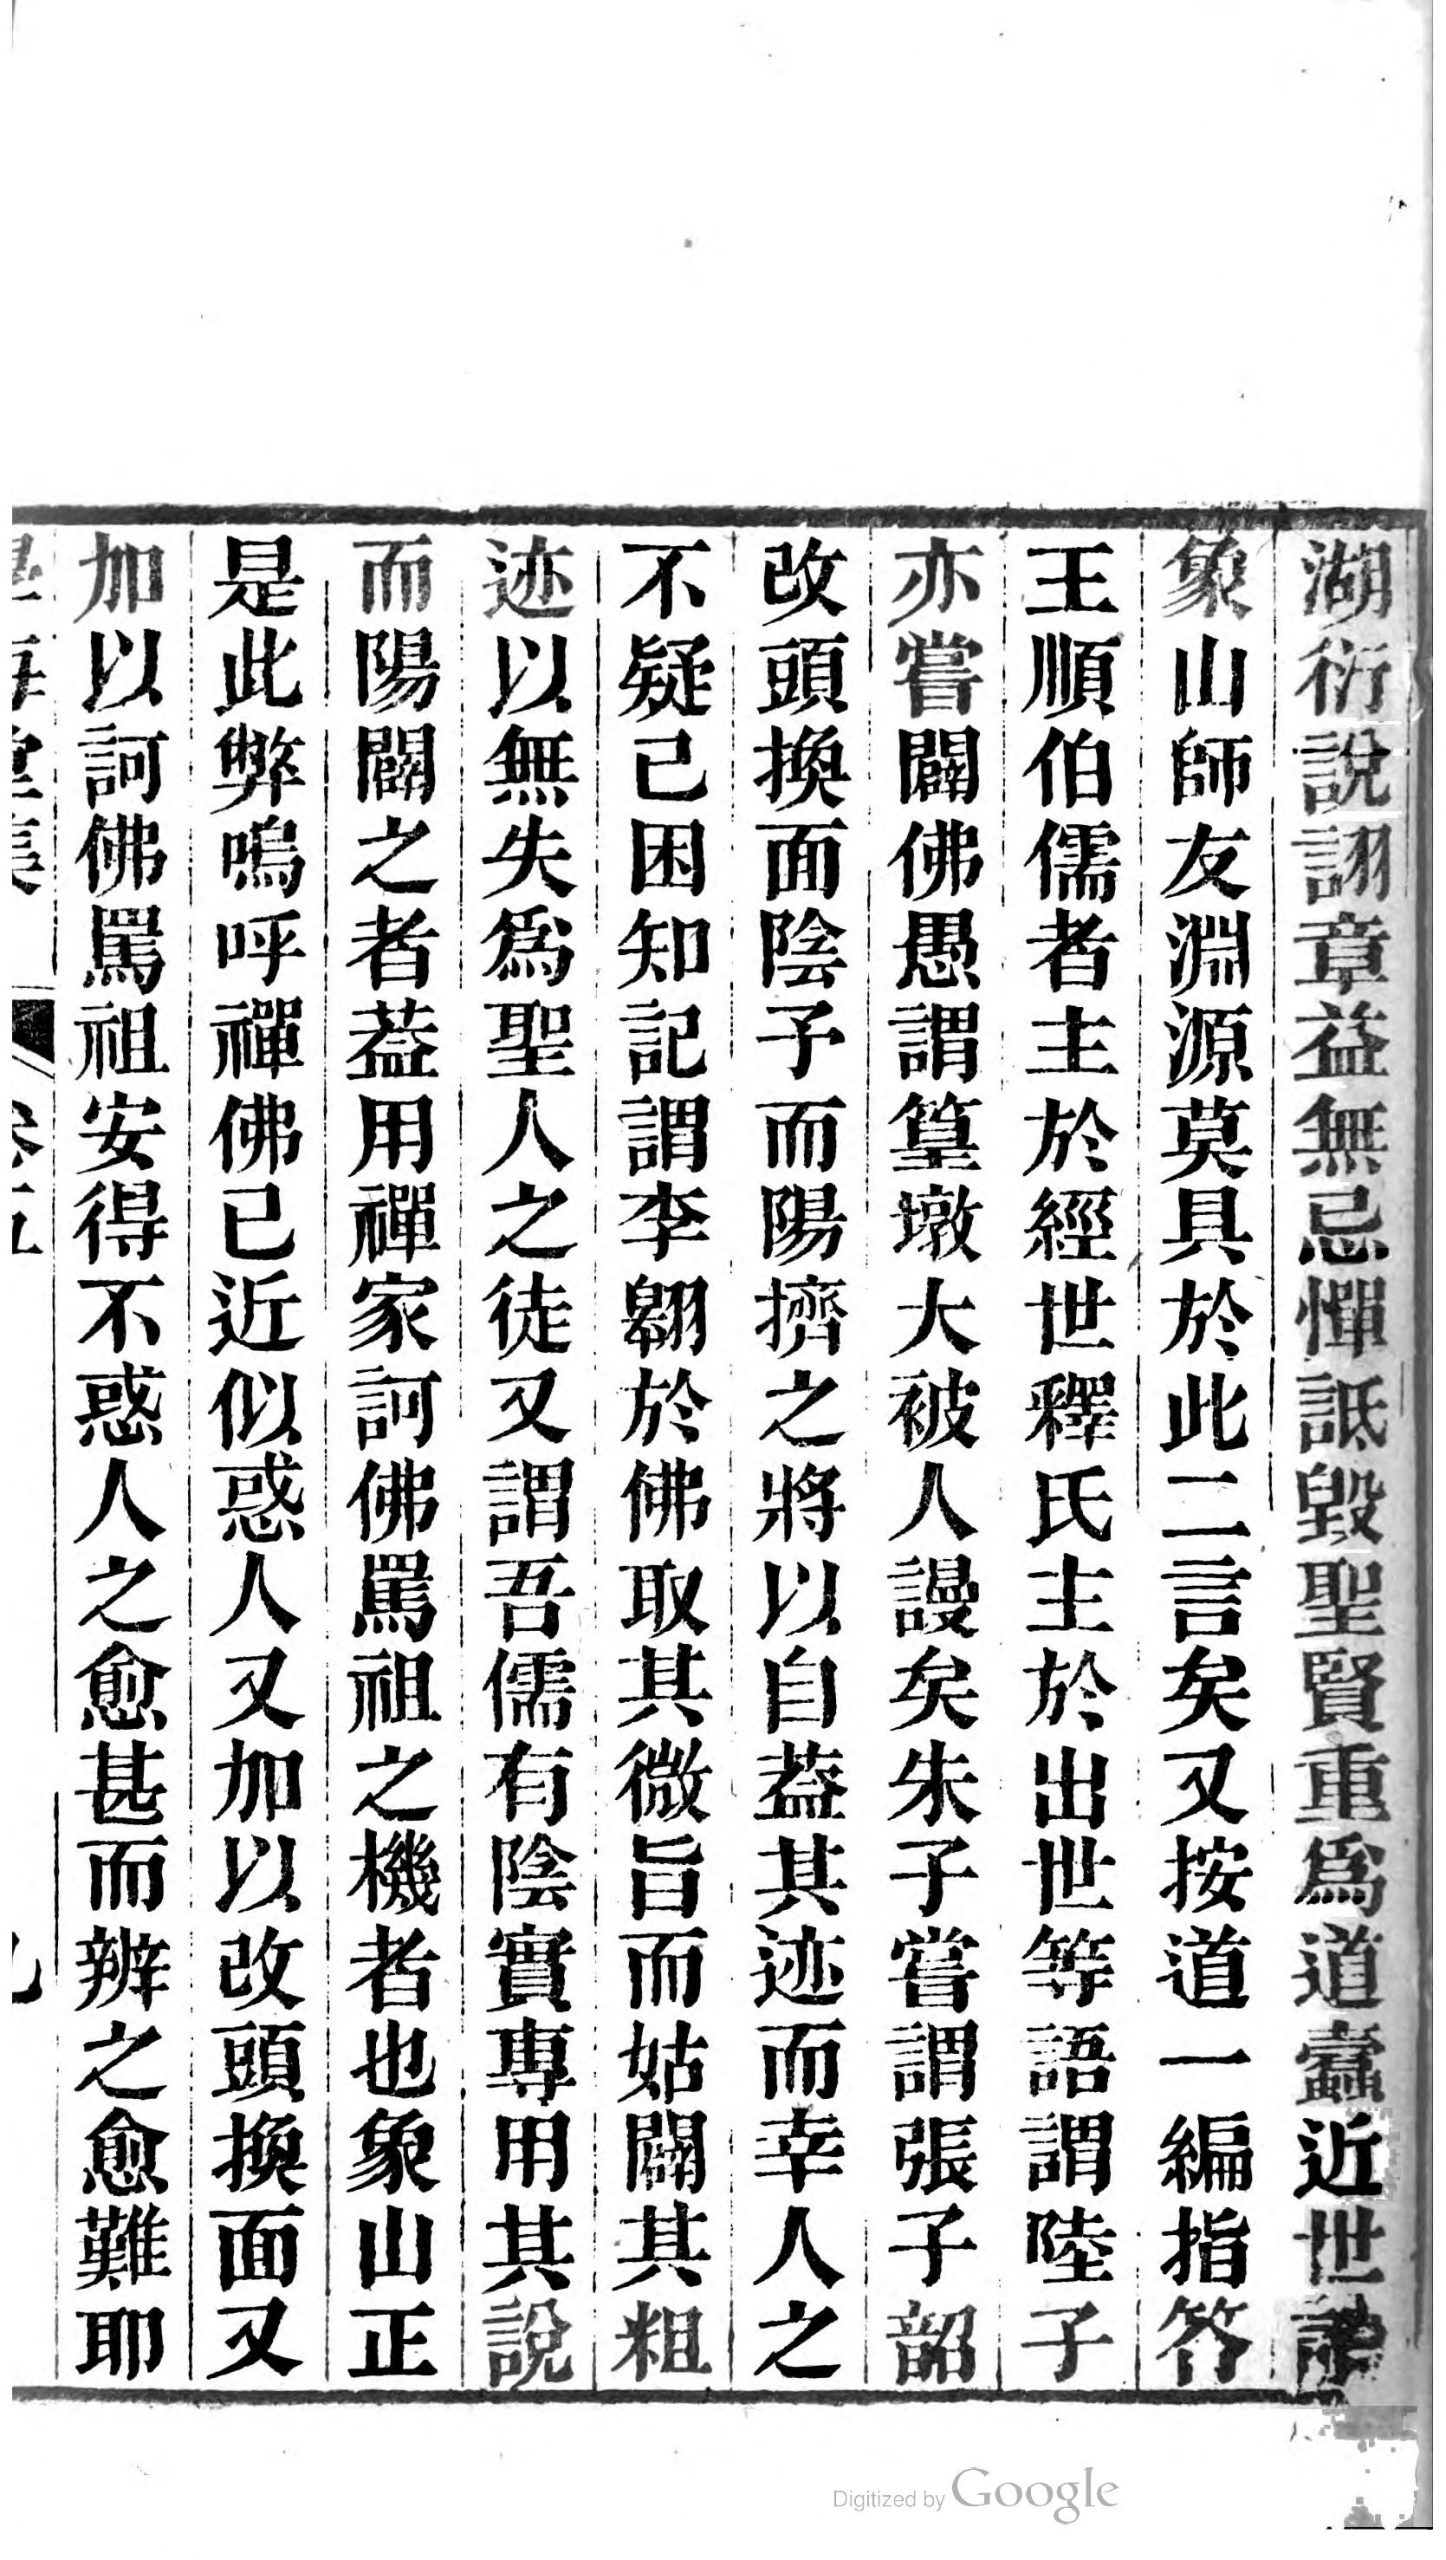 湖衍說詡章益無忌憚詆毀聖賢重爲道蠹近世論
象山師友淵源莫具於此二言矣又按道一編指答
王順伯儒者主於經世釋氏主於出世等語謂陸子
亦嘗闢佛愚謂篁墩大被人謾矣朱子嘗謂張子韶
改頭換面陰予而陽擠之將以自蓋其迹而幸人之
不疑已困知記謂李翱於佛取其微旨而姑闢其粗
迹以無失爲聖人之徒又謂吾儒有陰實專用其說
而陽闢之者蓋用禪家訶佛罵祖之機者也象山正
是此弊嗚呼禪佛已近似惑人又加以改頭換面又
加以訶佛罵祖安得不惑人之愈甚而辨之愈難耶
卷五
九
Digitized by Google